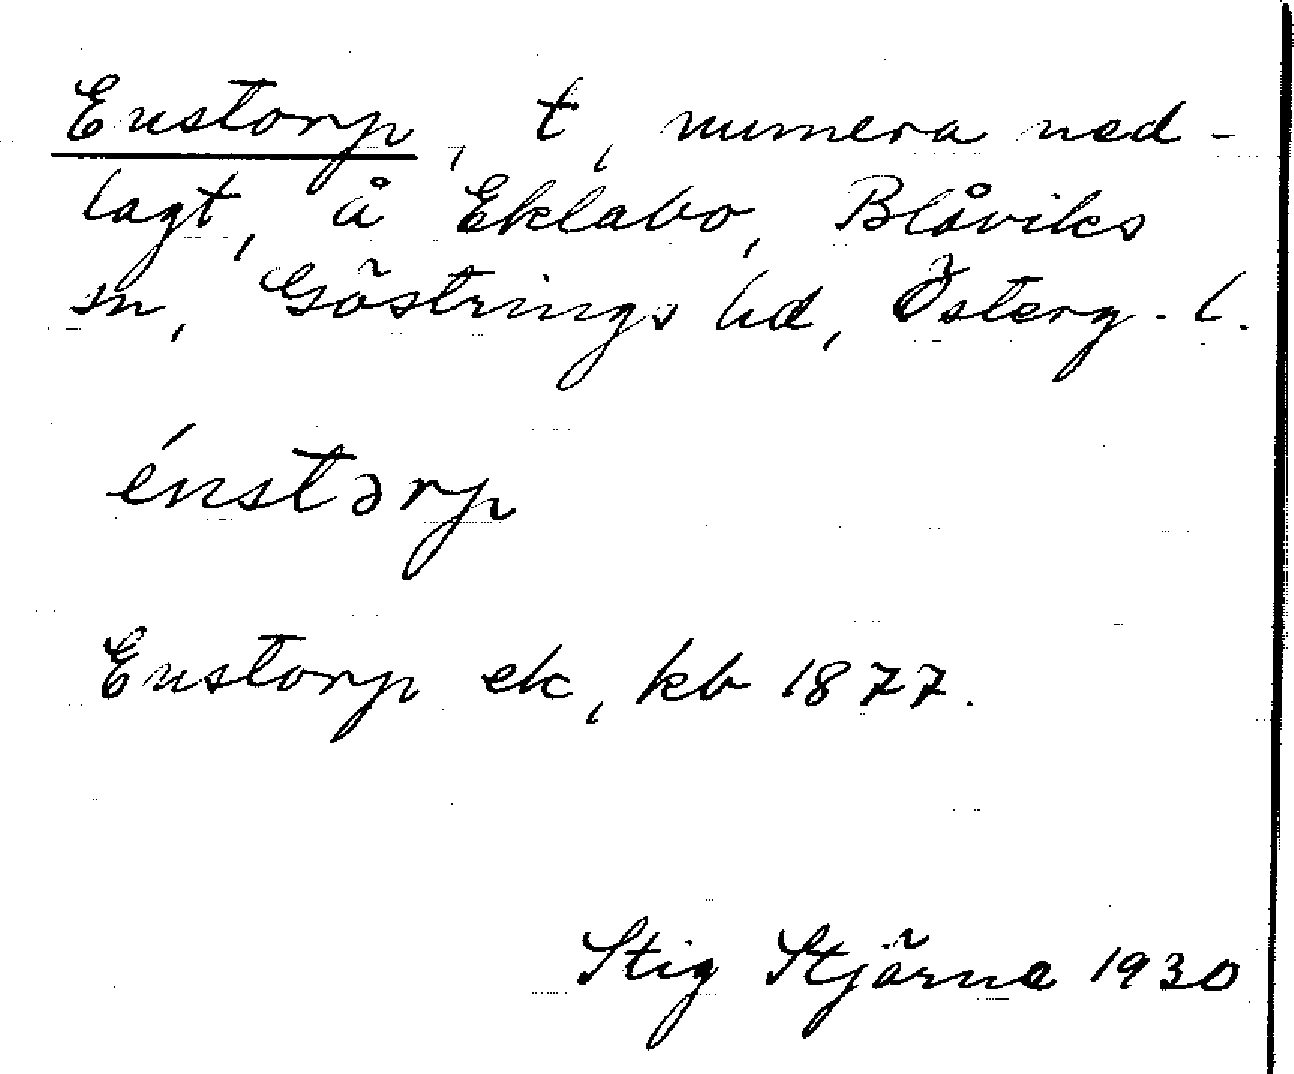 Enstorp, t, numera ned-
lagt, å Eklabo, Blåviks
sn, Göstrings hd, Österg. l.
énstərp
Enstorp ek, kb 1877.
Stig Stjärne 1930